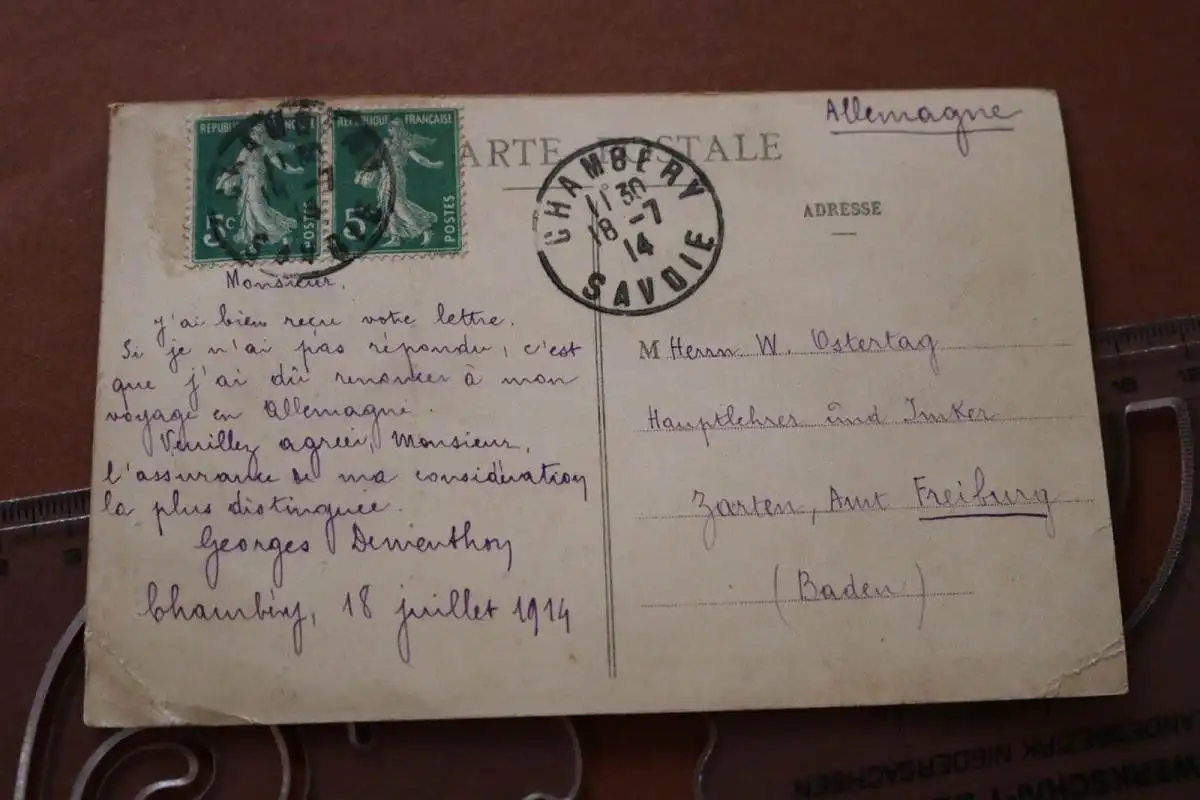 Allemagne
CARTE POSTALE
ADRESSE
RÉPUBLIQUE FRANÇAISE
5c
POSTES
RÉPUBLIQUE FRANÇAISE
5
POSTES
CHAMBERY
11 30
18 -7
14
SAVOIE
Monsieur,
J'ai bien reçu votre lettre.
Si je n'ai pas répondu, c'est
que j'ai dû renoncer à mon
voyage en Allemagne.
Veuillez agréer, Monsieur,
l'assurance de ma considération
la plus distinguée.
Georges Dementhon
Chambéry, 18 juillet 1914
M Herrn W. Ostertag
Hauptlehrer und Imker
Zarten, Amt Freiburg
(Baden)
NIEDERSACHSEN